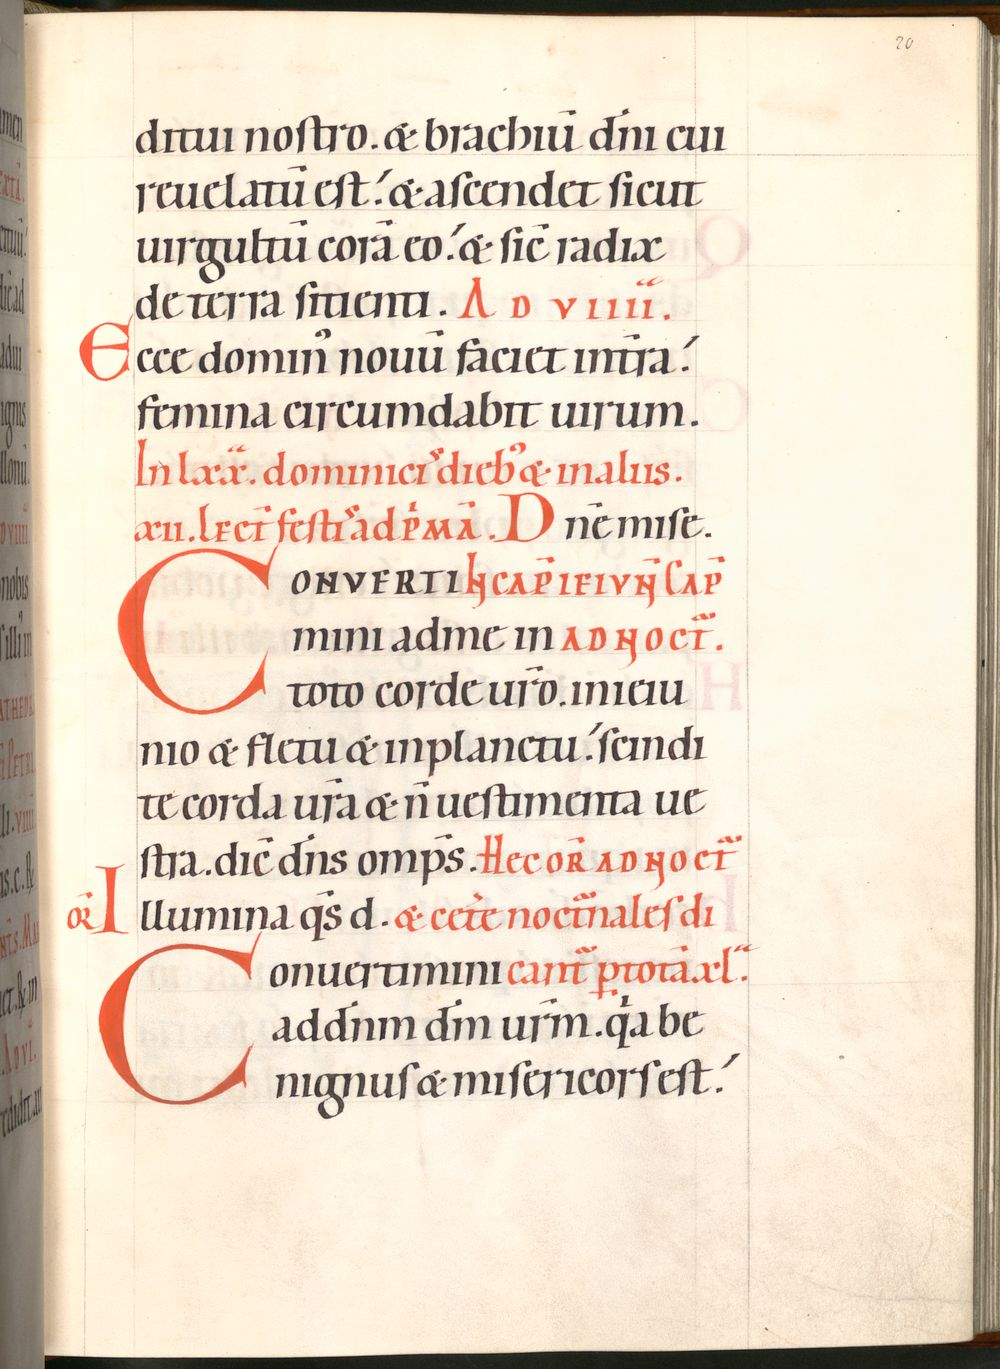 20
ditui nostro. & brachiū dn̄i cui
reuelatū est? & ascendet sicut
uirgultū corā eo? & sic̄ radix
de terra sitienti. AD VIIII.
Ecce domin' nouū faciet in tr̄a?
femina circumdabit uirum.
In lxx. dominicis dieb' & in aliis.
xii. Lect̄ festis ad p̄mā. Dn̄e mise.
CONVERTI CAP̄ IEIVN CAP̄
mini ad me in AD NOCT̄.
toto corde ur̄o. in ieiu
nio & fletu & in planctu? scindi
te corda ur̄a & n̄ uestimenta ue
stra. dic̄ dn̄s omp̄s. Hec OR̄ AD NOCT̄
OR̄ Illumina qs̄ d. & cetere nocturnales di
Conuertimini cant̄ p totā xl.
ad dn̄m dm̄ ur̄m. q̄a be
nignus & misericors est?